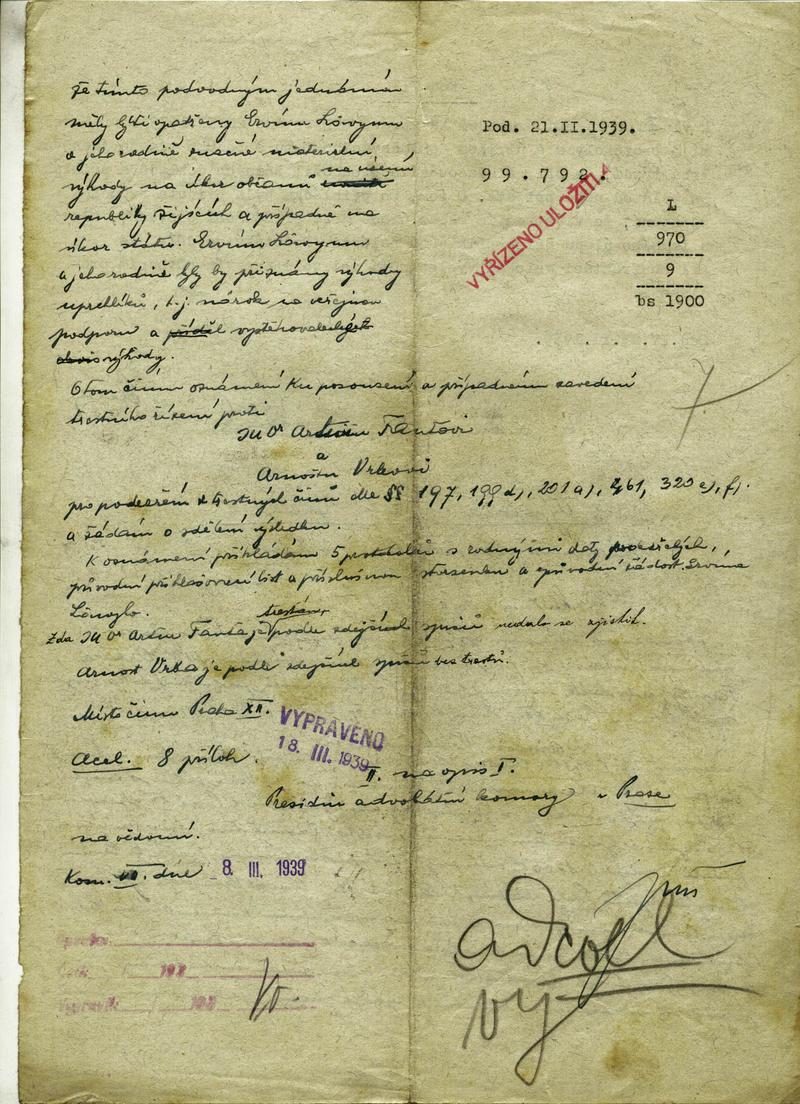 Že tímto podvodným jednáním
měly býti opatřeny Ervínu Löwymu
a jeho rodině značné materielní
na území
výhody na úkor občanů
republiky žijících a případně na
úkor státu. Ervínu Löwymu
a jeho rodině byly by přiznány výhody
uprchlíků, t.j. nárok na veřejnou
podporu a příděl vystěhovaleckých
výhody.
O tom činím oznámení ku posouzení a případnému zavedení
trestního řízení proti
JUDr Arturu Fantovi
a
Arnoštu Vrbovi
pro podezření z trestných činů dle §§ 197, 199 d), 201 a), 461, 320 e), f).
a žádám o sdělení výsledku.
K oznámení přikládám 5 protokolů s rodnými daty podezřelých,
průvodní přihlašovací list a příslušnou a průvodní žádost Ervína
Löwyho.
trestán,
Zda JUDr Artur Fanta je podle zdejších spisů nedalo se zjistit.
Arnošt Vrba je podle zdejších spisů bez trestů.
Místo činu Praha XII.
Acel. 8 příloh.
VYPRAVENO
18. III. 1939
II. na opis I.
Presidiu advokátní komory v Praze
na vědomí.
Kom. VII. dne 8. III. 1939
Pod. 21.II.1939.
99.792.
VYŘÍZENO ULOŽITI.
L
970
9
bs 1900
7